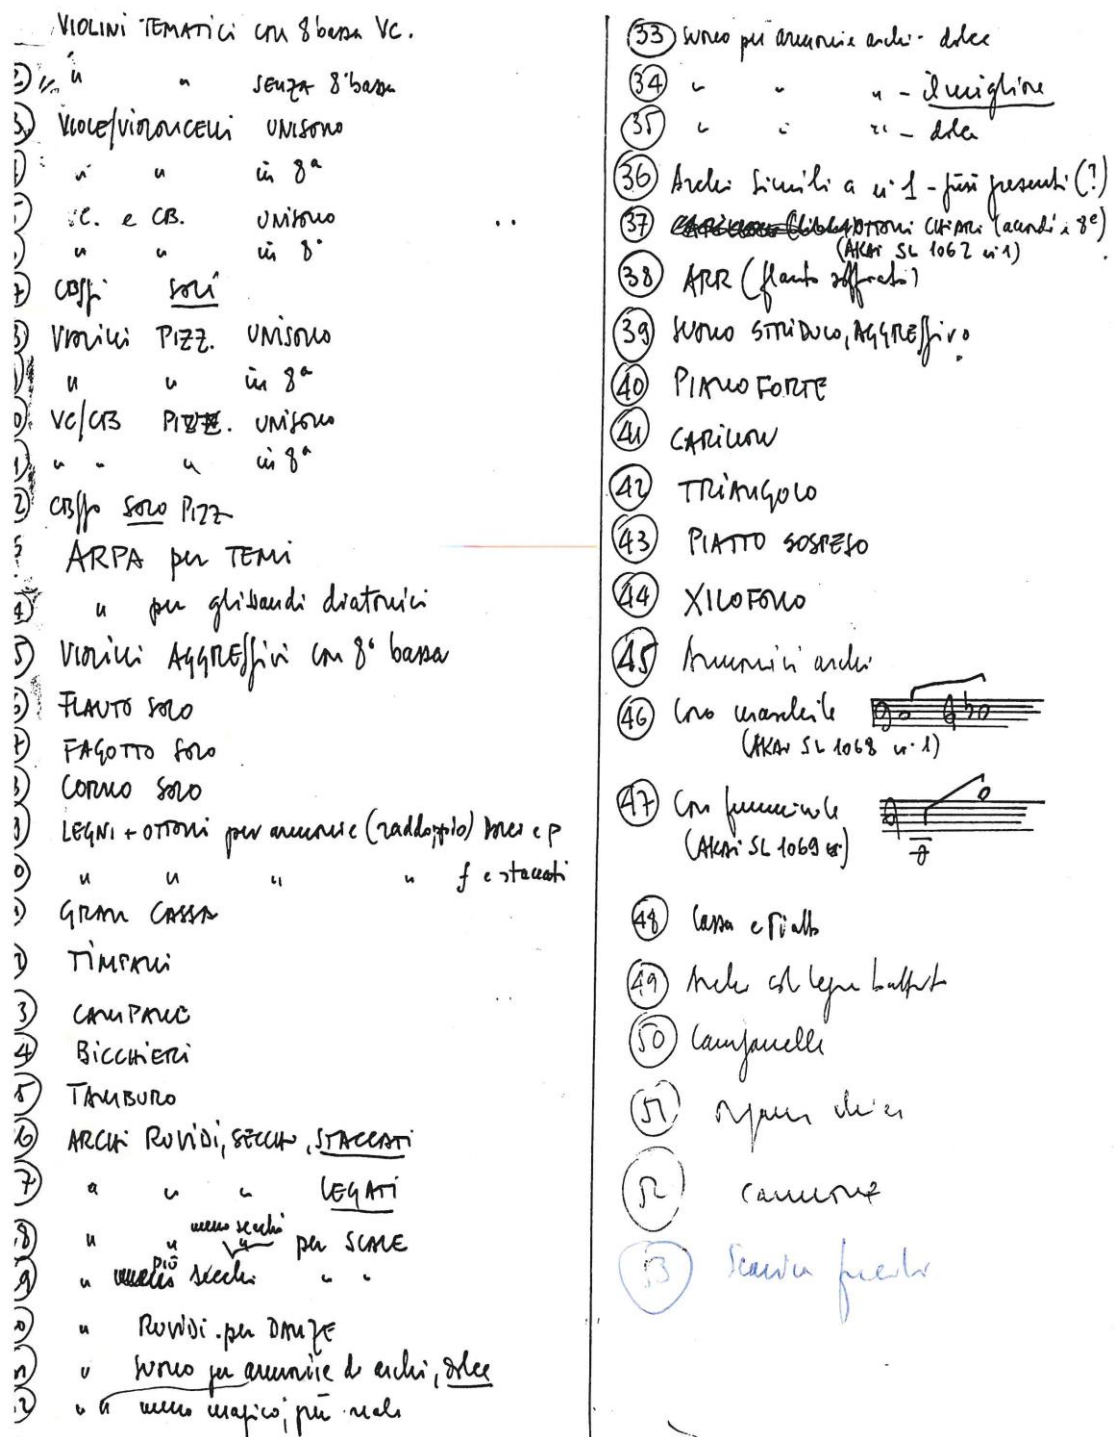 VIOLINI TEMATICI con 8 bassa VC.
2) " " SENZA 8ª bassa
3) VIOLE/VIOLONCELLI UNISONO
" " in 8ª
VC. e CB. UNISONO
" " in 8ª
CBssi soli
8) Violini PIZZ. UNISONO
" " in 8ª
0) VC/CB PIZZ. UNISONO
1) " " " in 8ª
2) CBsso SOLO PIZZ
ARPA per TEMI
4) " per glissandi diatonici
5) VIOLINI AGGRESSIVI con 8ª bassa
6) FLAUTO SOLO
7) FAGOTTO SOLO
8) CORNO SOLO
9) LEGNI + OTTONI per armonie (raddoppio) dolci e p
0) " " " " f e staccati
1) GRAN CASSA
2) TIMPANI
3) CAMPANE
4) BICCHIERI
5) TAMBURO
6) ARCHI RUVIDI, SECCHI, STACCATI
7) " " " LEGATI
8) " " meno secchi per SCALE
9) " più secchi " "
0) " RUVIDI per DANZE
1) " suono per armonie di archi, dolce
2) " " meno magico, più reale
33 suono per armonie archi - dolce
34 " " " - il migliore
35 " " " - dolce
36 Archi simili a n° 1 - più presenti (?)
37 OTTONI CHIARI (accordi e 8e)
(AKAI SL 1062 n° 1)
38 ARR (flauto soffiato)
39 SUONO STRIDULO, AGGRESSIVO
40 PIANOFORTE
41 CARILLON
42 TRIANGOLO
43 PIATTO SOSPESO
44 XILOFONO
45 Armonici archi
46 Coro maschile
(AKAI SL 1068 n° 1)
47 Coro femminile
(AKAI SL 1069)
48 Cassa e Piatto
49 Archi col legno battuto
50 Campanelli
51 organo
52 cannone
53